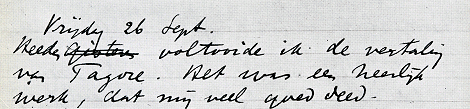 Vrijdag 26 Sept.
Heden gisteren voltooide ik de vertaling
van Tagore. Het was een heerlijk
werk, dat mij veel goed deed.